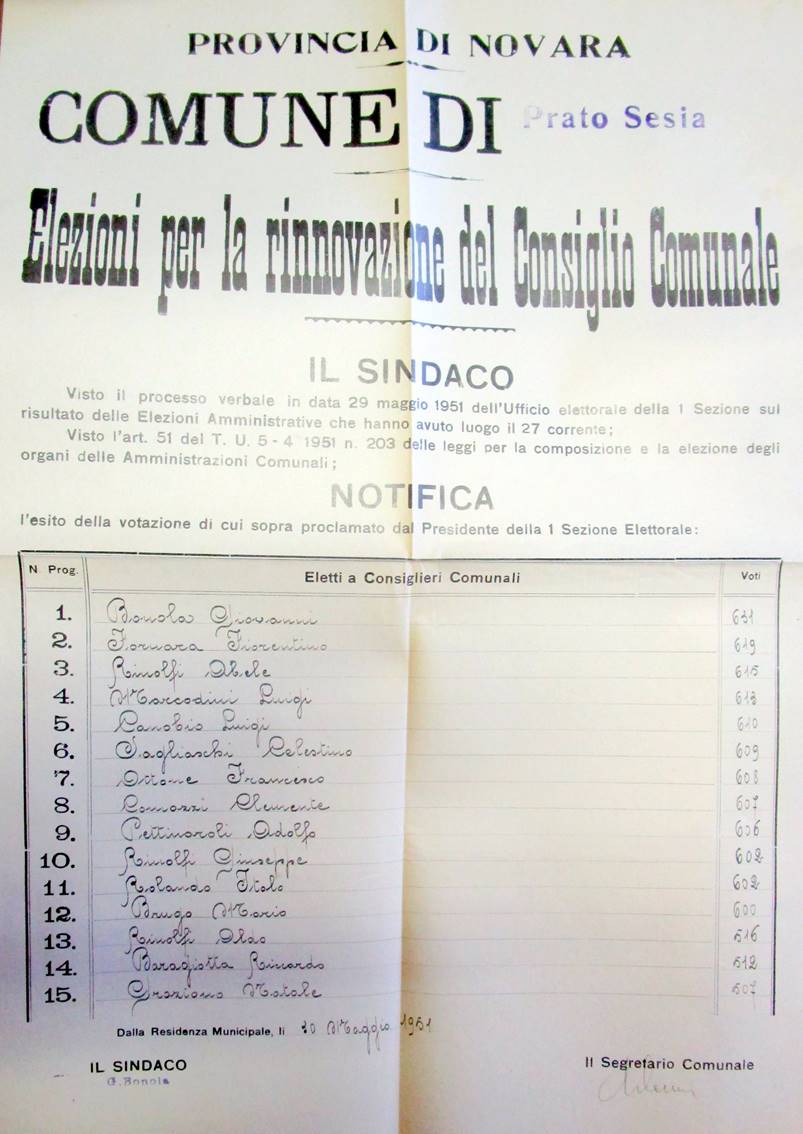 PROVINCIA DI NOVARA
COMUNE DI Prato Sesia
Elezioni per la rinnovazione del Consiglio Comunale
IL SINDACO
Visto il processo verbale in data 29 maggio 1951 dell'Ufficio elettorale della 1 Sezione sul
risultato delle Elezioni Amministrative che hanno avuto luogo il 27 corrente;
Visto l'art. 51 del T. U. 5-4 1951 n. 203 delle leggi per la composizione e la elezione degli
organi delle Amministrazioni Comunali;
NOTIFICA
l'esito della votazione di cui sopra proclamato dal Presidente della 1 Sezione Elettorale:
N Prog. Eletti a Consiglieri Comunali Voti
1. Bonola Giovanni 631
2. Fornara Fiorentino 619
3. Rinolfi Abele 615
4. Marcodini Luigi 613
5. Canobio Luigi 610
6. Sagliaschi Celestino 609
7. Ottone Francesco 608
8. Comazzi Clemente 607
9. Pettinaroli Adolfo 606
10. Rinolfi Giuseppe 602
11. Rolando Italo 602
12. Brugo Mario 600
13. Rinolfi Aldo 516
14. Baragiotta Riccardo 512
15. Graziano Natale 507
Dalla Residenza Municipale, li 30 Maggio 1951
IL SINDACO Il Segretario Comunale
G. Bonola